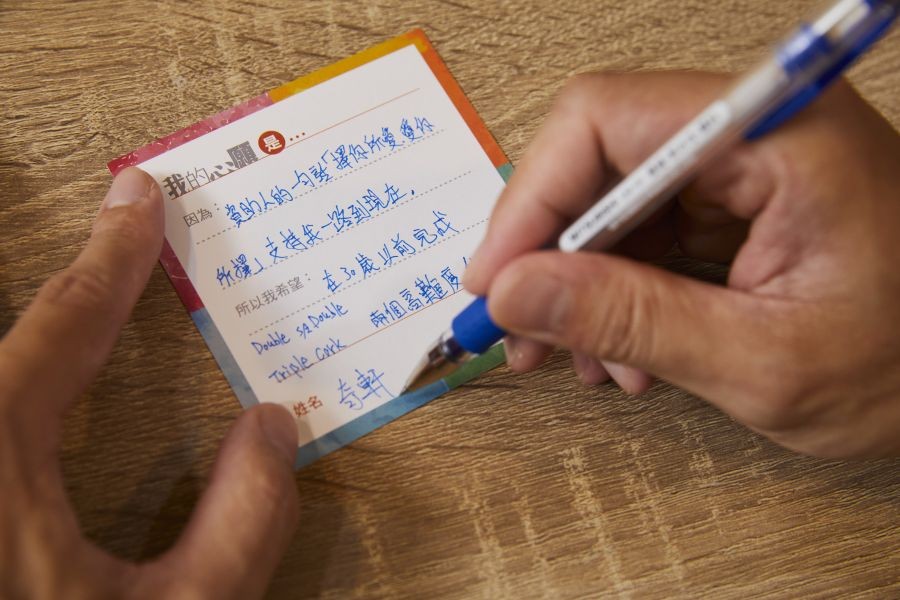 我的心願是…
因為：資助人的一句話「擇你所愛 愛你
所擇」支持我一路到現在.
所以我希望：在30歲以前完成
Double Double
Triple Cork 兩個高難度
姓名 奇軒